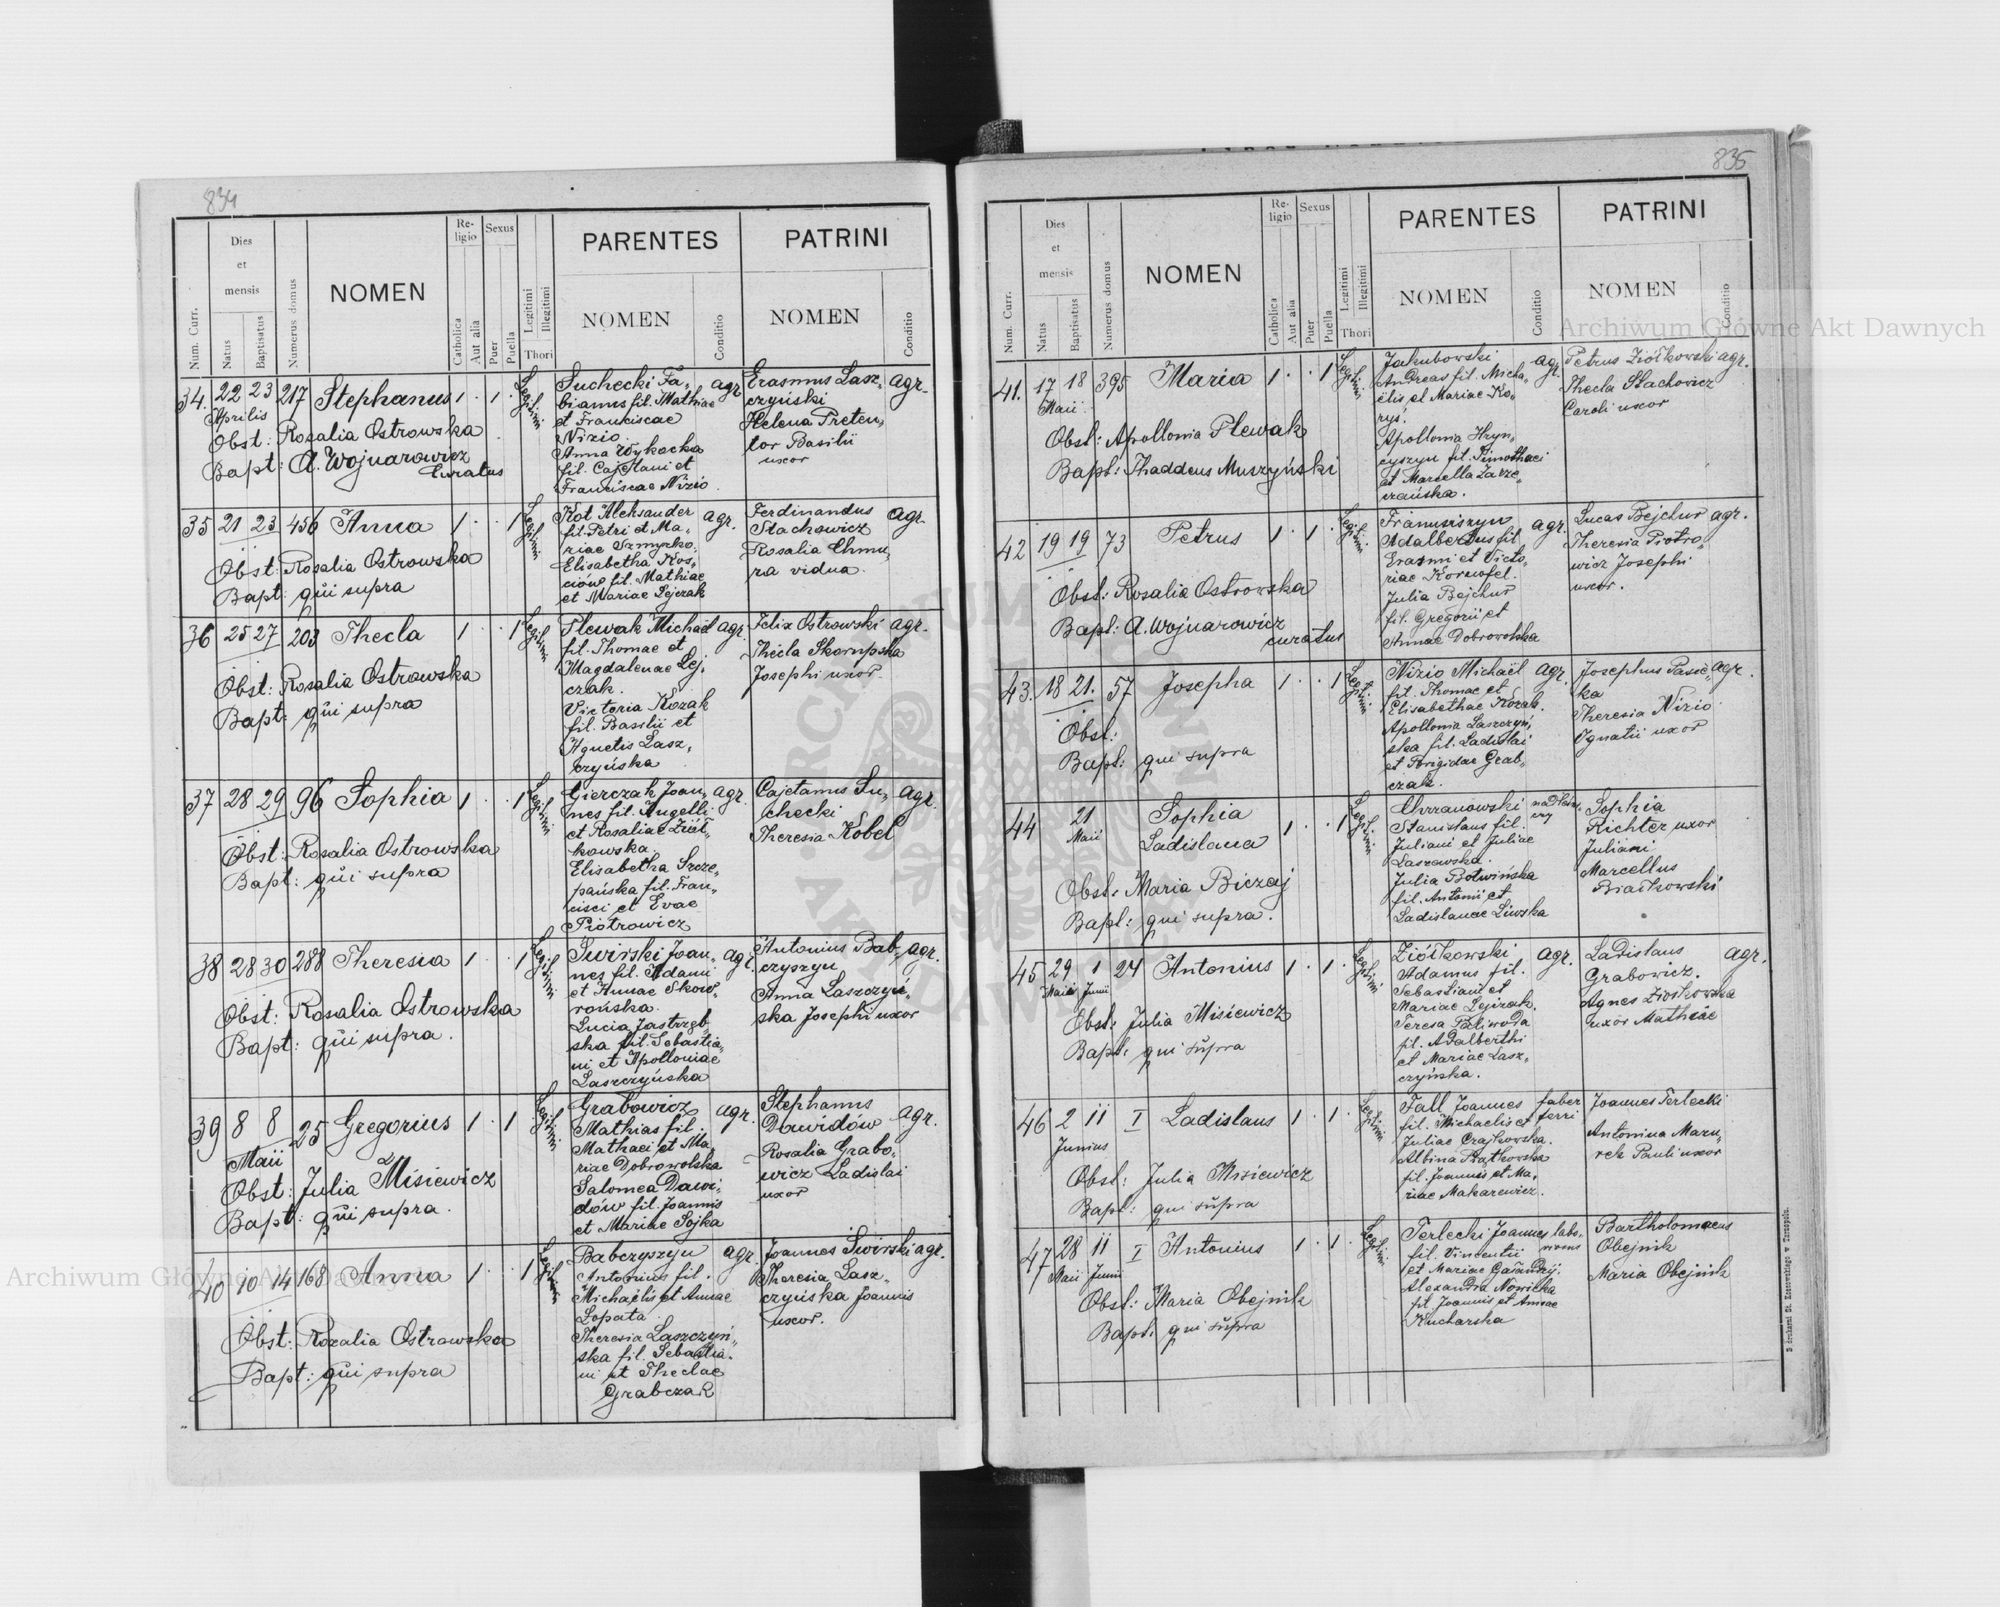 834
Num. Curr.
Dies et mensis
Natus
Baptisatus
Numerus domus
NOMEN
Religio
Catholica
Aut alia
Sexus
Puer
Puella
Legitimi
Illegitimi
Thori
PARENTES
NOMEN
Conditio
PATRINI
NOMEN
Conditio
34. 22 23 217 Stephanus 1 . 1 . Legitimi
Aprilis
Obst: Rosalia Ostrowska
Bapt: A. Wojnarowicz
Curatus
Suchecki Fa-
bianus fil. Mathiae
et Franciscae
Nizio.
Anna Wykocka
fil. Cajetani et
Franciscae Nizio.
agr.
Erasmus Lasz-
czyński
Helena Preten-
tor Basilii
uxor
agr.
35 21 23 456 Anna 1 . . 1 Legitimi
Obst: Rosalia Ostrowska
Bapt: qui supra
Kot Aleksander
fil. Petri et Ma-
riae Szmyrko.
Elisabetha Kos-
ciów fil. Mathiae
et Mariae Lejczak
agr.
Ferdinandus
Stachowicz
Rosalia Chmu-
ra vidua.
agr.
36 25 27 203 Thecla 1 . . 1 Legitimi
Obst: Rosalia Ostrowska
Bapt: qui supra
Plewak Michael
fil. Thomae et
Magdalenae Lej-
czak.
Victoria Kozak
fil. Basilii et
Agnetis Lasz-
czyńska
agr.
Felix Ostrowski
Thecla Skorupska
Josephi uxor.
agr.
37 28 29 96 Sophia 1 . . 1 Legitimi
Obst: Rosalia Ostrowska
Bapt: qui supra
Gierczak Joan-
nes fil. Angelli
et Rosaliae Ziół-
kowska.
Elisabetha Szcze-
pańska fil. Fran-
cisci et Evae
Piotrowicz
agr.
Cajetanus Su-
checki
Theresia Kobel
agr.
38 28 30 288 Theresia 1 . . 1 Legitimi
Obst: Rosalia Ostrowska
Bapt: qui supra.
Swirski Joan-
nes fil. Adami
et Annae Skow-
rońska.
Lucia Jastrzęb-
ska fil. Sebastia-
ni et Apolloniae
Laszczyńska
agr.
Antonius Bab-
czyszyn
Anna Laszczyń-
ska Josephi uxor
agr.
39 8 8 25 Gregorius 1 . 1 . Legitimi
Maii
Obst: Julia Misiewicz
Bapt: qui supra.
Grabowicz
Mathias fil.
Mathaei et Ma-
riae Dobrowolska
Salomea Dawi-
dów fil. Joannis
et Mariae Sojka
agr.
Stephanus
Dawidów
Rosalia Grabo-
wicz Ladislai
uxor
agr.
40 10 14 168 Anna 1 . . 1 Legitimi
Obst: Rozalia Ostrowska
Bapt: qui supra
Babczyszyn
Antonius fil.
Michaelis et Annae
Łopata
Theresia Laszczyń-
ska fil. Sebastia-
ni et Theclae
Grabczak
agr.
Joannes Swirski
Theresia Lasz-
czyńska Joannis
uxor.
agr.
835
Num. Curr.
Dies et mensis
Natus
Baptisatus
Numerus domus
NOMEN
Religio
Catholica
Aut alia
Sexus
Puer
Puella
Legitimi
Illegitimi
Thori
PARENTES
NOMEN
Conditio
PATRINI
NOMEN
Conditio
41. 17 18 395 Maria 1 . . 1 Legitimi
Maii
Obst: Apollonia Plewak
Bapt: Thaddeus Muszyński
Jakubowski
Andreas fil. Micha-
elis et Mariae Ko-
rys.
Apollonia Hryn-
cyszyn fil. Timothaei
et Marcella Zarze-
czańska.
agr.
Petrus Ziółkowski
Thecla Stachowicz
Caroli uxor
agr.
42 19 19 73 Petrus 1 . 1 . Legitimi
Obst: Rosalia Ostrowska
Bapt: A. Wojnarowicz
curatus
Franusiszyn
Adalbertus fil.
Erasmi et Victo-
riae Kornofel.
Julia Bejchur
fil. Gregorii et
Annae Dobrowolska
agr.
Lucas Bejchur
Theresia Piotro-
wicz Josephi
uxor.
agr.
43. 18 21. 57 Josepha 1 . . 1 Legitimi
Obst:
Bapt: qui supra
Nizio Michaël
fil. Thomae et
Elisabethae Kozak.
Apollonia Laszczyń-
ska fil. Ladislai
et Brigidae Grab-
czak.
agr.
Josephus Pasie-
ka
Theresia Nizio
Ignatii uxor
agr.
44 21 Sophia 1 . . 1 Legitimi
Maii Ladislaua
Obst: Maria Biczaj
Bapt: qui supra.
Chrzanowski
Stanislaus fil.
Juliani et Juliae
Laszewska.
Julia Botwińska
fil. Antonii et
Ladislauae Liwska
Sophia
Richter uxor
Juliani
Marcellus
Białkowski
45 29 1 24 Antonius 1 . 1 . Legitimi
Maii Junii
Obst: Julia Misiewicz
Bapt: qui supra
Ziółkowski
Adamus fil.
Sebastiani et
Mariae Lejczak.
Teresa Paliwoda
fil. Adalberthi
et Mariae Lasz-
czyńska.
agr.
Ladislaus
Grabowicz.
Agnes Ziołkowska
uxor Mathiae
agr.
46 2 11 I Ladislaus 1 . 1 . Legitimi
Junius
Obst: Julia Misiewicz
Bapt: qui supra
Fall Joannes
fil. Michaelis et
Juliae Czajkowska.
Albina Piątkowska
fil. Joannis et Ma-
riae Makarewicz.
faber
ferri
Joannes Terlecki
Antonina Mazu-
rek Pauli uxor
47 28 11 I Antonius 1 . 1 . Legitimi
Maii Junii
Obst: Maria Obejnik
Bapt: qui supra
Terlecki Joannes
fil. Vincentii
et Mariae Gałandzij.
Alexandra Nowicka
fil. Joannis et Annae
Kucharska
Bartholomaeus
Obejnik
Maria Obejnik
Z drukarni St. Kossowskiego w Tarnopolu.
Archiwum Główne Akt Dawnych
Archiwum Główne Akt Dawnych